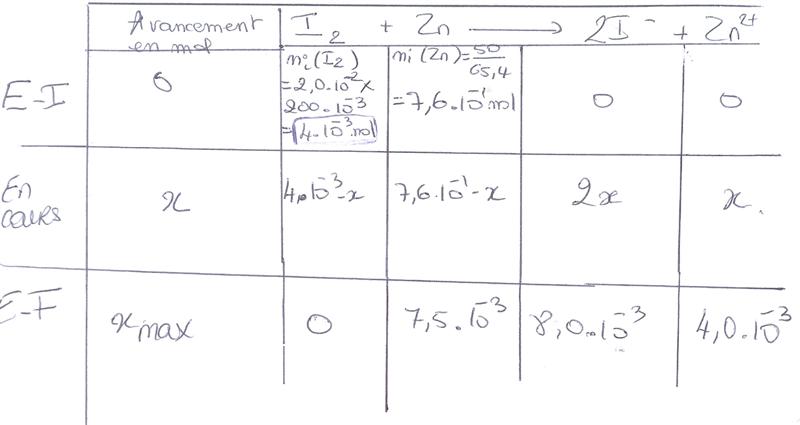 Avancement en mol I₂ + Zn → 2I⁻ + Zn²⁺
E-I 0 nᵢ(I₂) =2,0.10⁻²x 200.10⁻³ =4.10⁻³mol nᵢ(Zn)=50/65,4 =7,6.10⁻¹mol 0 0
En cours x 4,10⁻³-x 7,6.10⁻¹-x 2x x.
E-F xmax 0 7,5.10⁻³ 8,0.10⁻³ 4,0.10⁻³